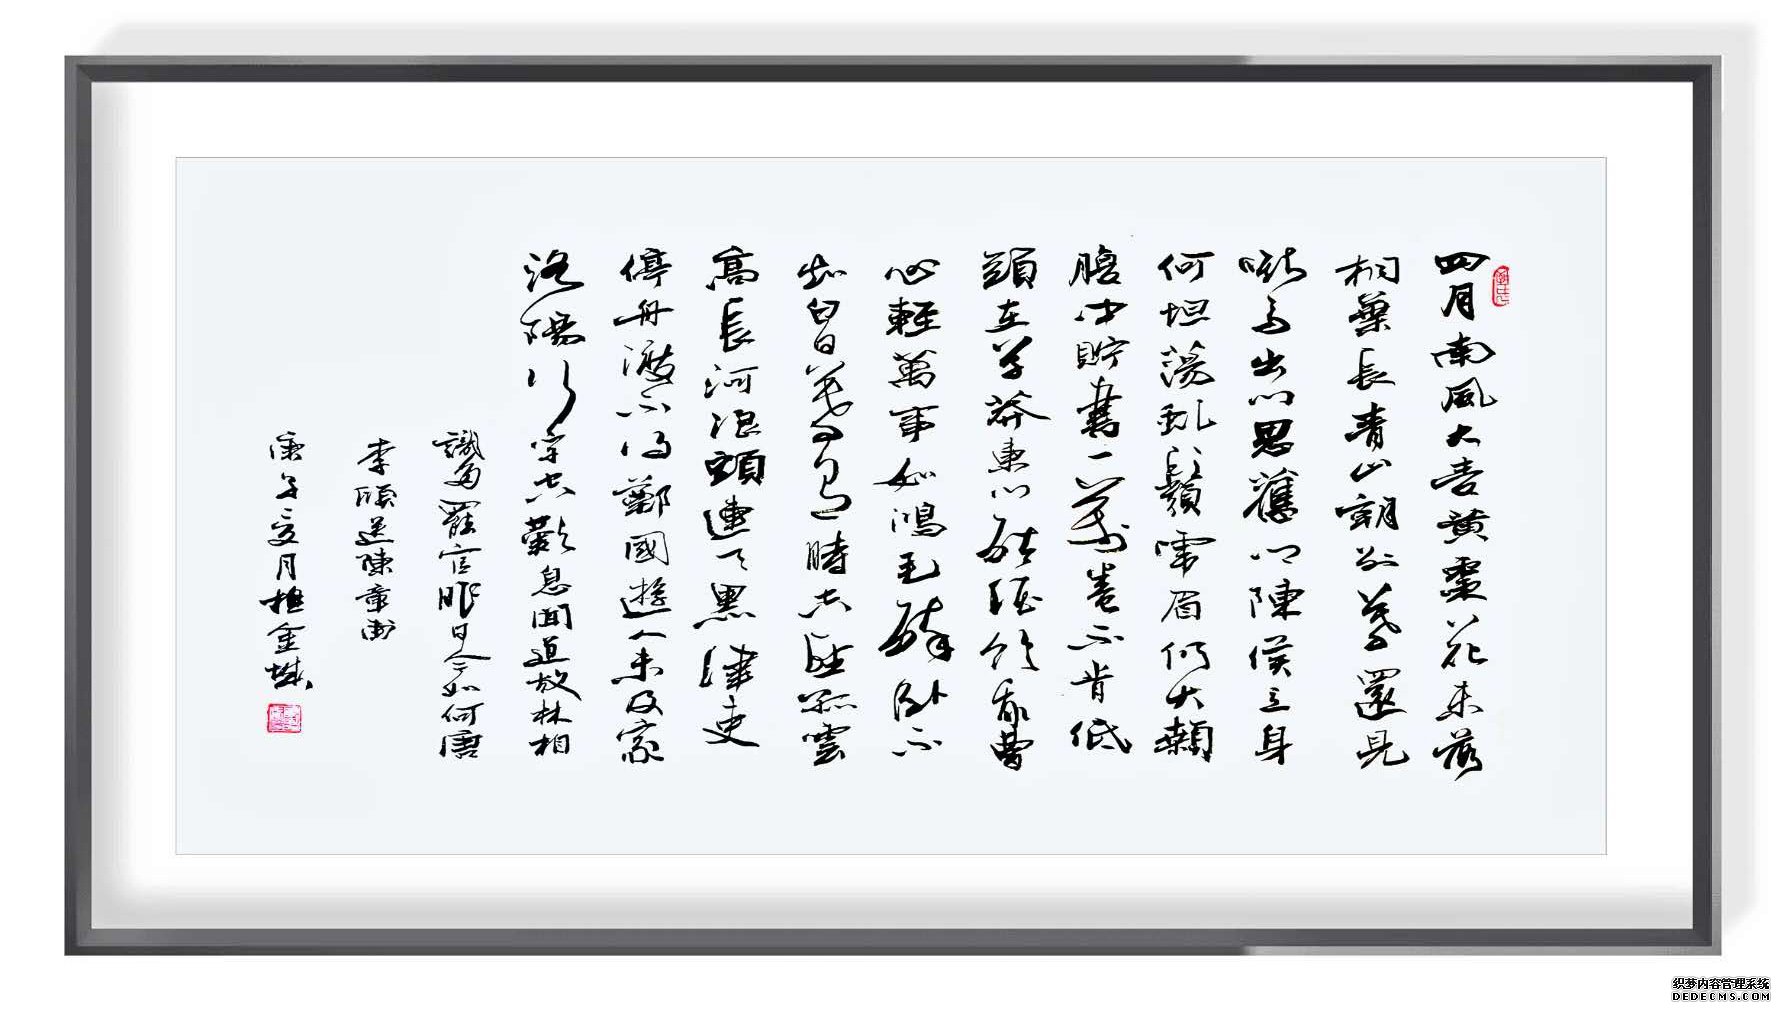 四月南風大麥黃棗花未落
桐葉長青山朝別暮還見
嘶馬出門思舊鄉陳侯立身
何坦蕩虬鬚虎眉仍大顙
腹中貯書一萬卷不肯低
頭在草莽東門酤酒飲我曹
心輕萬事如鴻毛醉臥不
知白日暮有時空望孤雲
高長河浪頭連天黑津吏
停舟渡不得鄭國遊人未及家
洛陽行子空歎息聞道故林相
識多罷官昨日今如何唐
李頎送陳章甫
庚子夏月金城
织梦内容管理系统
DEDECMS.COM